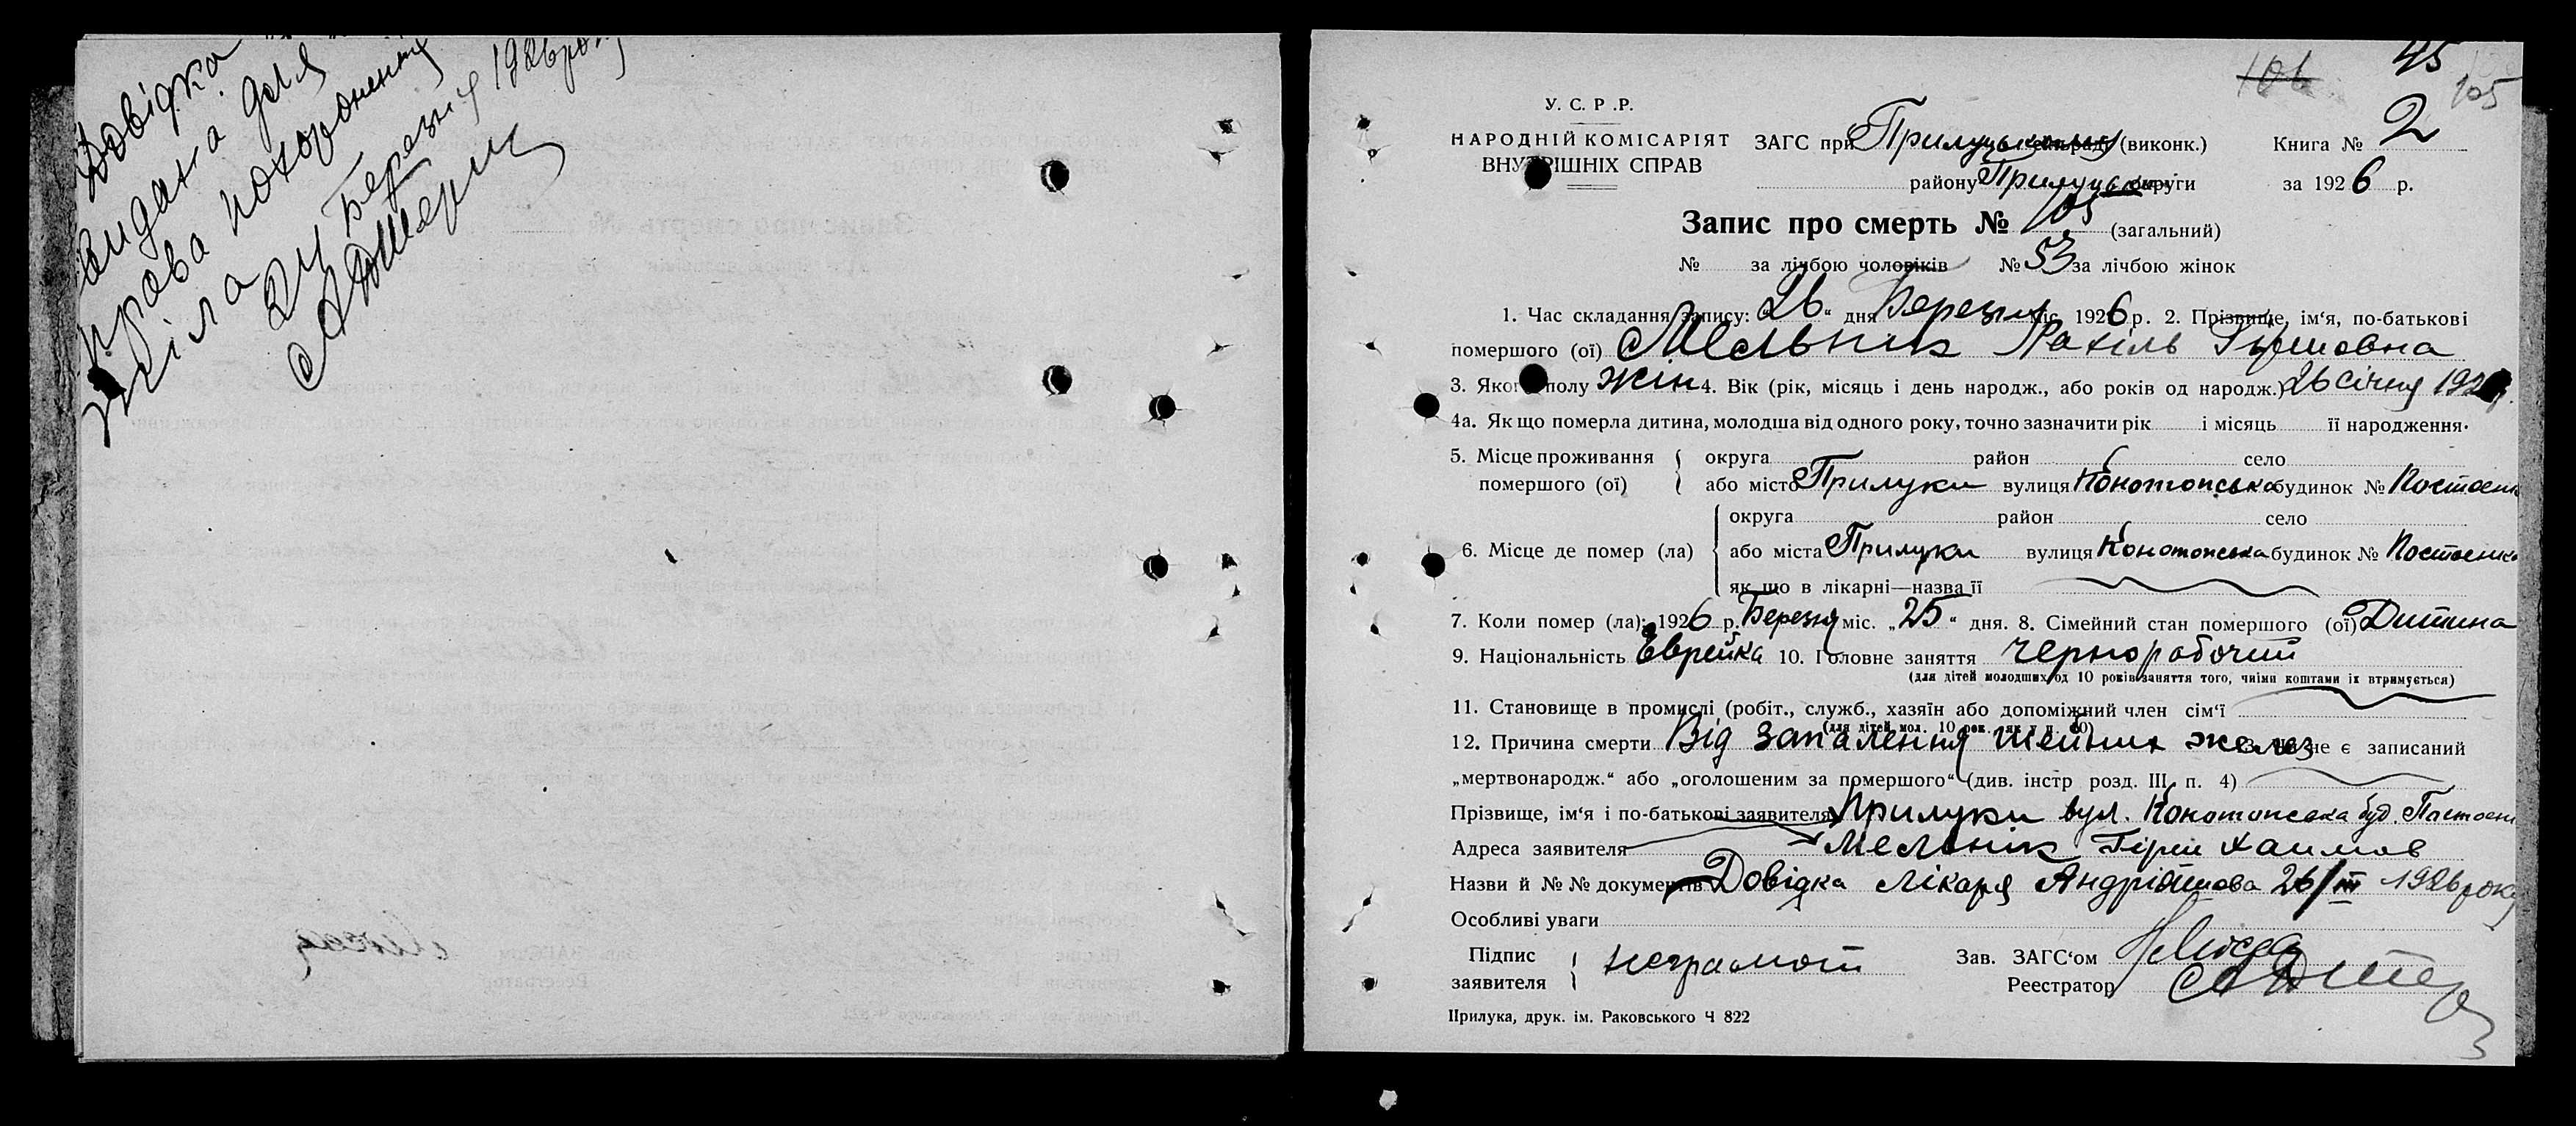 Довідка
видана для
права похоронення
тіла
24 Березня 1926 року
45
106
105
У. С. Р. Р.
НАРОДНІЙ КОМІСАРІЯТ
ВНУТРІШНІХ СПРАВ
ЗАГС при Прилуцькому (виконк.)
Книга № 2
району Прилуцьк округи
за 1926 р.
Запис про смерть № 105 (загальний)
№ за лічбою чоловіків № 53 за лічбою жінок
1. Час складання запису: „26“ дня Березня міс. 1926 р. 2. Прізвище, ім‘я, по-батькові
помершого (ої) Мельнік Рахіль Гіршовна
3. Якого полу жін 4. Вік (рік, місяць і день народж., або років од народж.) 26 січня 192
4а. Як що померла дитина, молодша від одного року, точно зазначити рік і місяць її народження.
5. Місце проживання помершого (ої) { округа район село
або місто Прилуки вулиця Конотопська будинок № Постоєнк
6. Місце де помер (ла) { округа район село
або міста Прилуки вулиця Конотопська будинок № Постоєнка
як що в лікарні—назва її
7. Коли помер (ла): 1926 р. Березня міс. „25“ дня. 8. Сімейний стан помершого (ої) Дитина
9. Національність Еврейка 10. Головне заняття Чернорабочий
(для дітей молодших од 10 років заняття того, чиїми коштами їх втримується)
11. Становище в промислі (робіт., служб., хазяїн або допоміжний член сім‘ї
(для дітей мол. 10 рок. як у п. 10)
12. Причина смерти Від запалення шейних желез не є записаний
„мертвонародж.“ або „оголошеним за помершого“ (див. інстр розд. III, п. 4)
Прізвище, ім‘я і по-батькові заявителя Прилуки вул. Конотопська буд. Постоєн
Адреса заявителя Мельнік Гірш Хаимов
Назви й №№ документів Довідка лікаря Андріяшова 26/III 1926 року
Особливі уваги
Підпис заявителя { неграмот
Зав. ЗАГС‘ом
Реестратор
Прилука, друк. ім. Раковського Ч 822